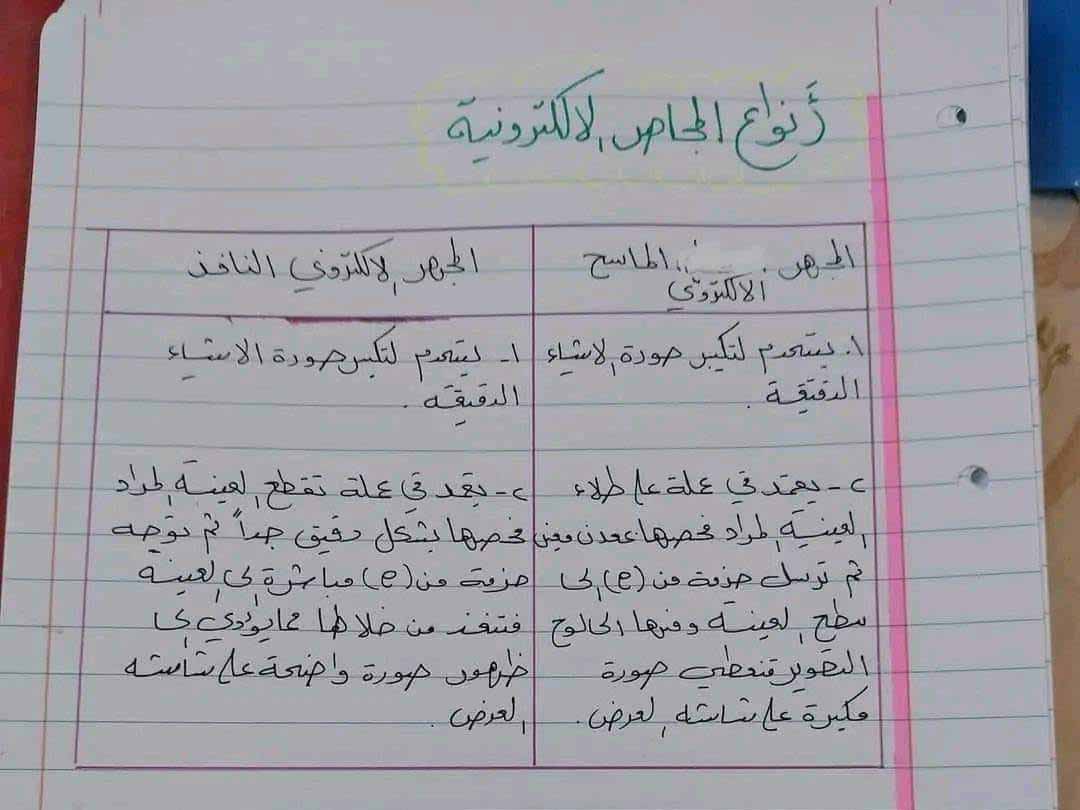 أنواع المجاهر الالكترونية
المجهر الماسح
الالكتروني
١. يستخدم لتكبير صورة الاشياء
الدقيقة.
٢- يعتمد في عملة على طلاء
العينية المراد فحصها بمعدن معين
ثم ترسل حزمة من (e) الى
سطح العينة ومنها الى لوح
التصوير فتعطي صورة
مكبرة على شاشه العرض.
المجهر الالكتروني النافذ
١- يستخدم لتكبير صورة الاشياء
الدقيقه.
٢- يعتمد في عملة تقطع العينة المراد
فحصها بشكل دقيق جداً ثم توجه
حزمة من (e) مباشرة الى العينه
فتنفذ من خلالها مما يؤدي الى
ظهور صورة واضحة على شاشه
العرض.